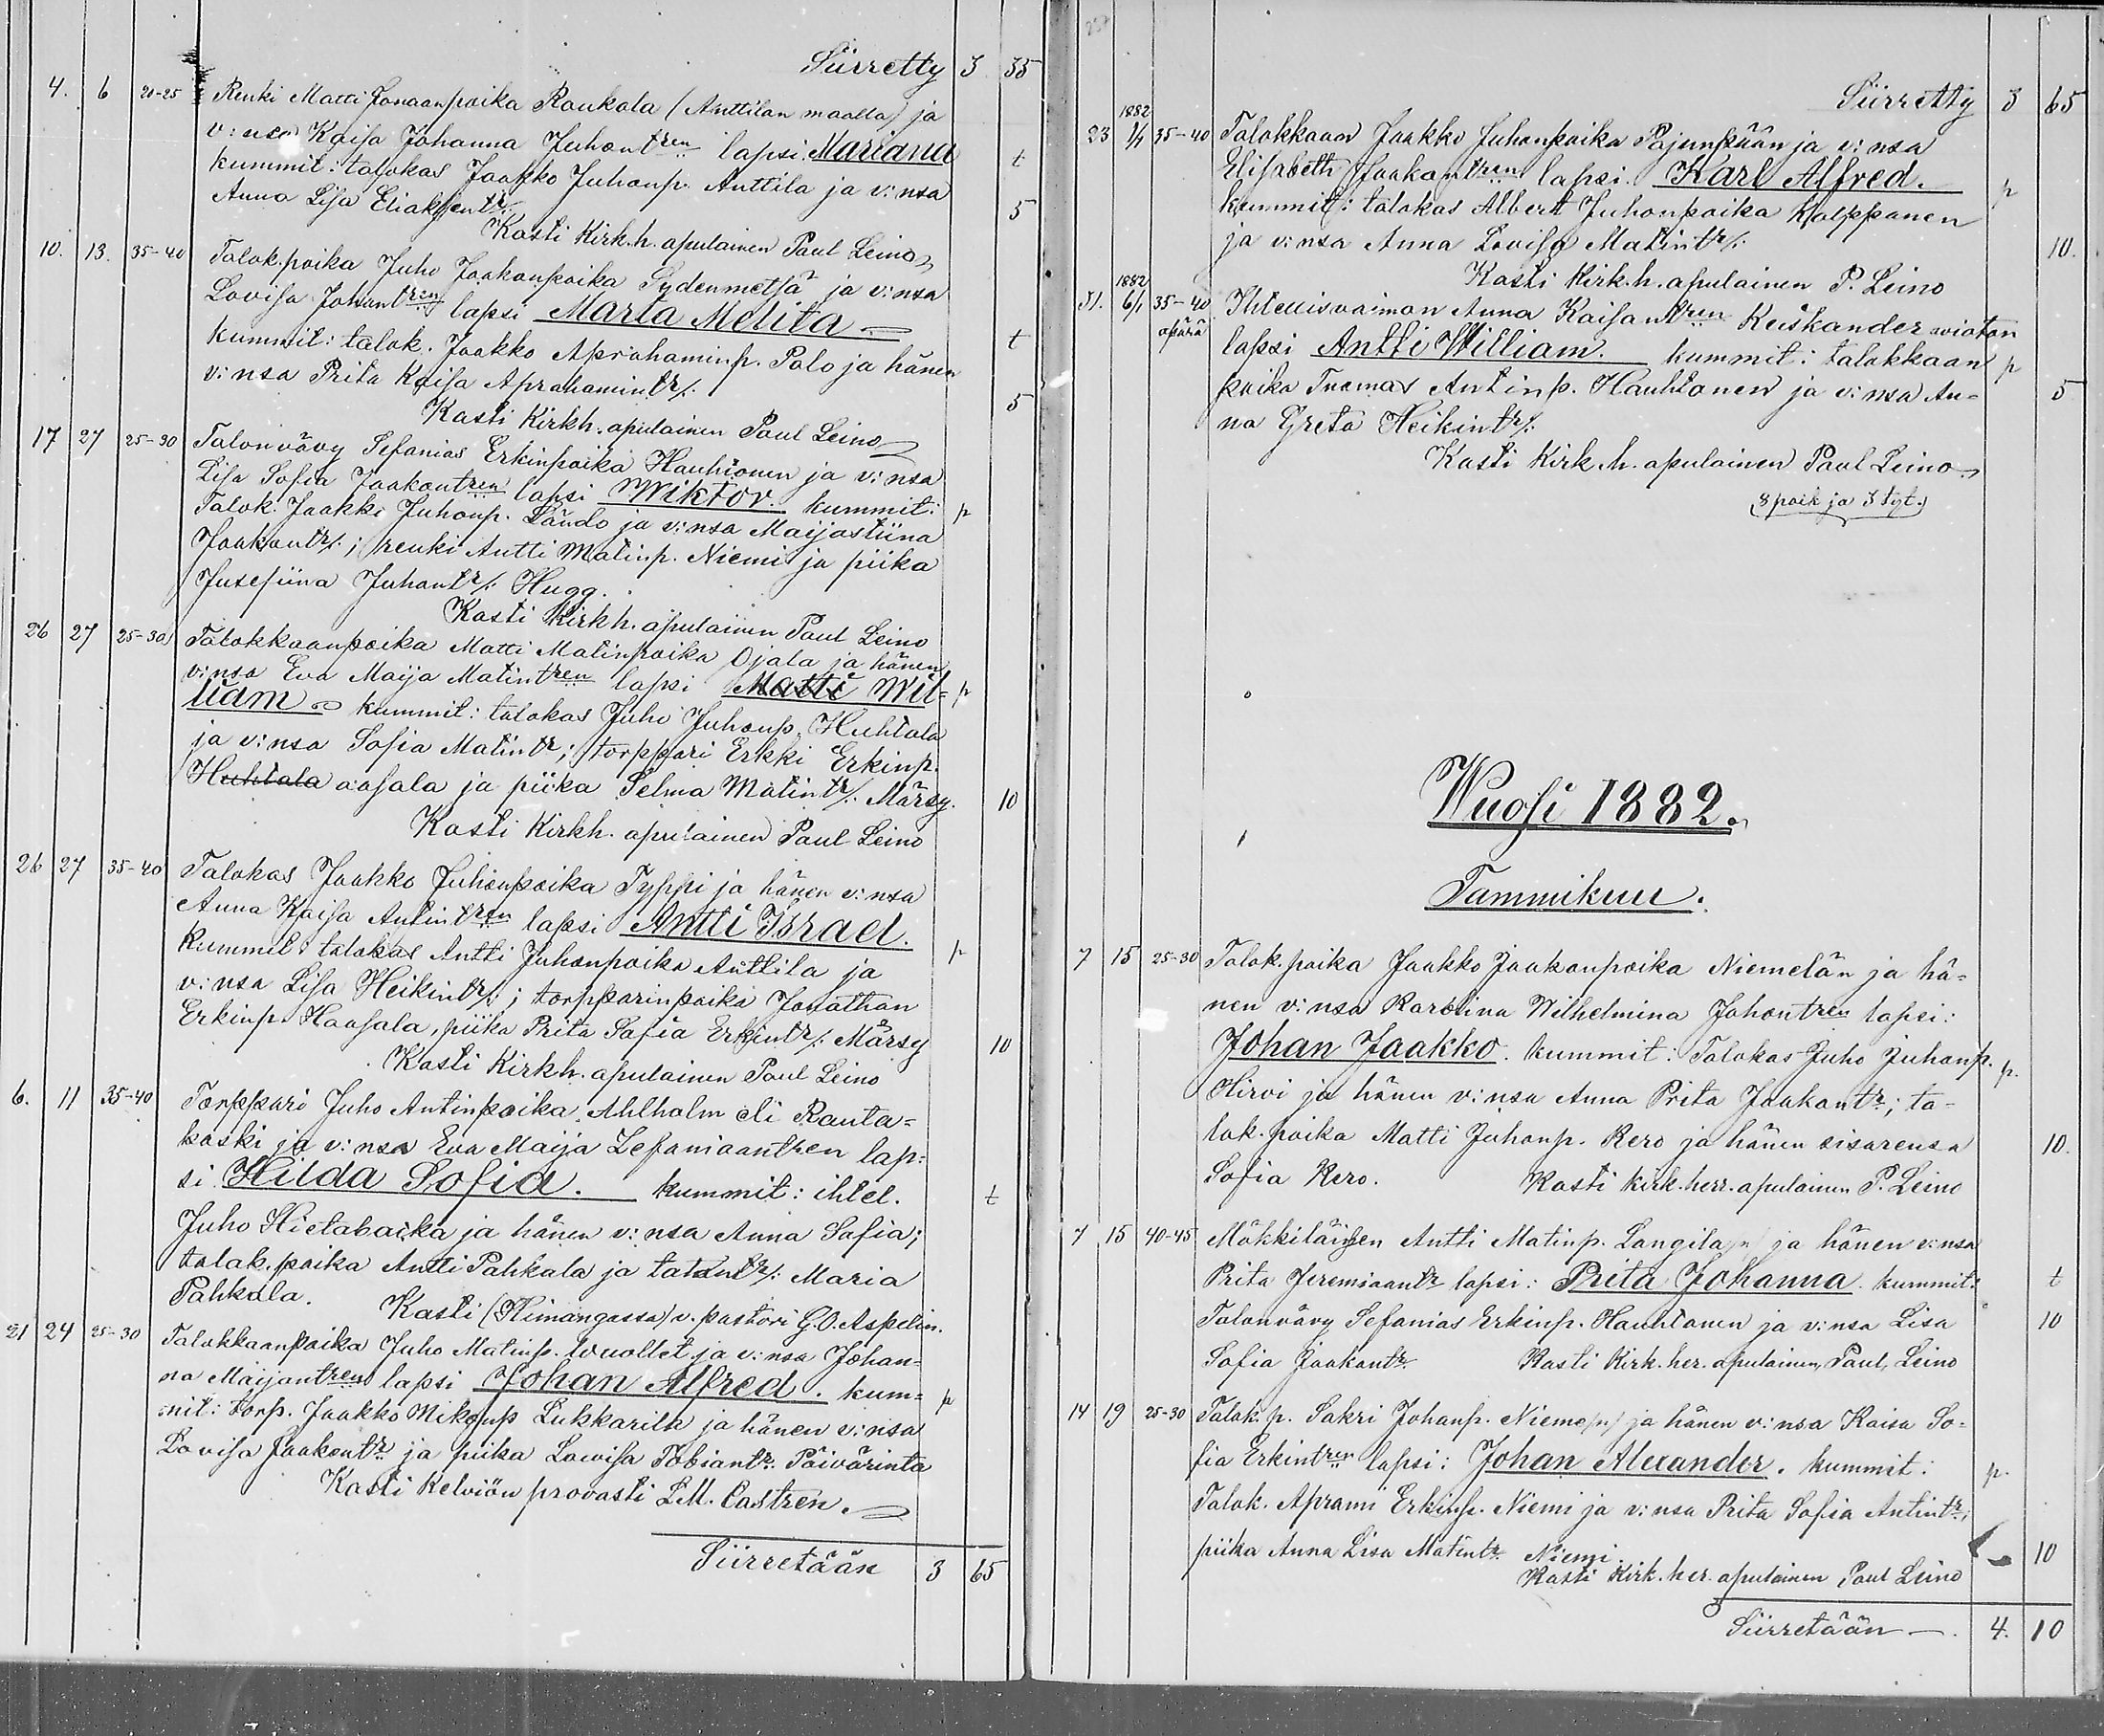 Siirretty 3 35
4. 6 20-25 Renki Matti Jonaanpoika Raukala (Anttilan maalla) ja
v:nsa Kaisa Johanna Juhontren lapsi Mariana t
kummit: talokas Jaakko Juhonp. Anttila ja v:nsa
Anna Lisa Eliaksentr/: 5
Kasti Kirk.h. apulainen Paul Leino
10. 13. 35-40 Talok.poika Juho Jaakonpoika Sydenmetsä ja v:nsa
Lovisa Johantren lapsi Marta Melita t
kummit: talok. Jaakko Aprahaminp. Palo ja hänen
v:nsa Prita Kaisa Aprahamintr/: 5
Kasti Kirkh. apulainen Paul Leino
17 27 25-30 Talonvävy Sefanias Erkinpoika Hauhtonen ja v:nsa
Lisa Sofia Jaakontren lapsi Wiktor. kummit: p
Talok. Jaakko Juhonp. Ländo ja v:nsa Maijastiina
Jaakontr/:; renki Antti Matinp. Niemi ja piika
Jusefiina Juhontr/: Hugg.
Kasti Kirkh. apulainen Paul Leino
26 27 25-30 Talokkaanpoika Matti Matinpoika Ojala ja hänen
v:nsa Eva Maija Matintren lapsi Matti Wil= p
liam kummit: talokas Juho Juhonp. Huhtala
ja v:nsa Sofia Matintr; torppari Erkki Erkinp.
Huhtala aasala ja piika Selma Matintr/: Märsy. 10
Kasti Kirkh. apulainen Paul Leino
26 27 35-40 Talokas Jaakko Juhonpoika Typpi ja hänen v:nsa
Anna Kaisa Antintren lapsi Antti Israel. p
Kummit talokas Antti Juhonpoika Anttila ja
v:nsa Lisa Heikintr/:; torpparinpoika Jonathan
Erkinp. Haasala, piika Prita Sofia Erkintr/: Märsy 10
Kasti Kirkh. apulainen Paul Leino
6. 11 35-40 Torppari Juho Antinpoika Ahlholm eli Rauta=
koski ja v:nsa Eva Maija Zefaniaantren lap=
si Hilda Sofia. kummit: ihtel. t
Juho Hietabacka ja hänen v:nsa Anna Sofia;
talok.poika Antti Pahkala ja talontr/: Maria
Pahkala. Kasti (Himangassa) v. pastori G.O. Aspelin.
21 24 25-30 Talokkaanpoika Juho Matinp. Wuollet ja v:nsa Johan=
na Maijantren lapsi Johan Alfred. kum= p
mit: torp. Jaakko Mikonp Lukkarila ja hänen v:nsa
Lovisa Jaakontr ja piika Lowisa Tobiantr. Päivärinta
Kasti Kelviön provasti L.M. Castrén.
Siirretään 3 65
Siirretty 3 65
23 1882 1/1 35-40 Talokkaan Jaakko Juhonpoika Pajunpään ja v:nsa
Elisabeth Jaakontren lapsi. Karl Alfred. p
kummit: talokas Albert Juhonpoika Kolppanen
ja v:nsa Anna Lovisa Matintr/: 10.
Kasti Kirk.h. apulainen P. Leino
31. 1882 6/1 35-40 Ihtellisvaimon Anna Kaisa Antren Keiskander avioton
äpärä lapsi Antti William. kummit: talokkaan p
poika Tuomas Antinp. Hauhtonen ja v:nsa An= 5
na Greta Heikintr/:
Kasti Kirk.h. apulainen Paul Leino
(8 poik ja 3 tyt.)
Wuosi 1882.
Tammikuu.
7 15 25-30 Talok.poika Jaakko Jaakonpoika Niemelän ja hä=
nen v:nsa Karolina Wilhelmina Johantren lapsi:
Johan Jaakko. kummit: Talokas Juho Juhonp. p.
Hirvi ja hänen v:nsa Anna Prita Jaakontr; ta-
lok.poika Matti Juhonp. Kero ja hänen sisarensa 10.
Sofia Kero. Kasti kirk.herr. apulainen P. Leino
7 15 40-45 Mökkiläisen Antti Matinp. Langila(n) ja hänen v:nsa
Prita Jeremiaantr lapsi: Prita Johanna. kummit: t
Talonvävy Sefanias Erkinp. Hauhtonen ja v:nsa Lisa 10
Sofia Jaakontr. Kasti Kirk.her. apulainen Paul Leino
14 19 25-30 Talok.p. Sakri Johanp. Nieme(n) ja hänen v:nsa Kaisa So=
fia Erkintren lapsi: Johan Alexander. kummit: p.
Talok. Aprami Erkinp. Niemi ja v:nsa Prita Sofia Antintr;
piika Anna Lisa Matintr. Niemi. 10
Kasti Kirk.her. apulainen Paul Leino
Siirretään 4. 10